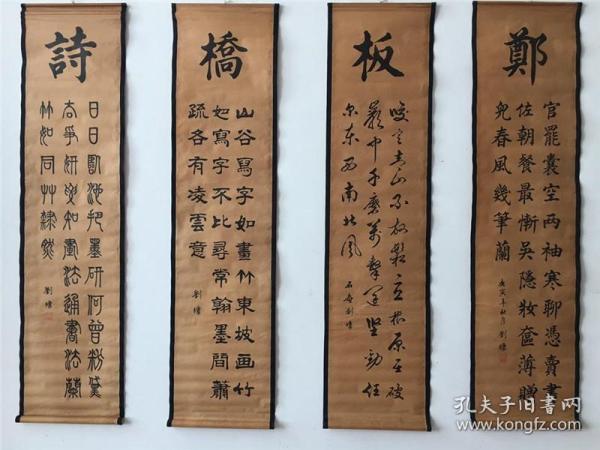 鄭
官罷囊空两袖寒聊憑賣畫
佐朝餐最慚吳隱妝奩薄贈
兒春風幾筆蘭
劉墉
板
咬定青山不放鬆立根原在破
巖中千磨萬擊還堅勁任
尔东西南北風
石庵劉墉
橋
山谷寫字如畫竹東坡画竹
如寫字不比尋常翰墨間蕭
疏各有凌雲意
劉墉
詩
日日臨池把墨研何曾粉黛
去爭妍要知畫法通書法蘭
竹如同艸隸然
劉墉
孔夫子旧书网
www.kongfz.com